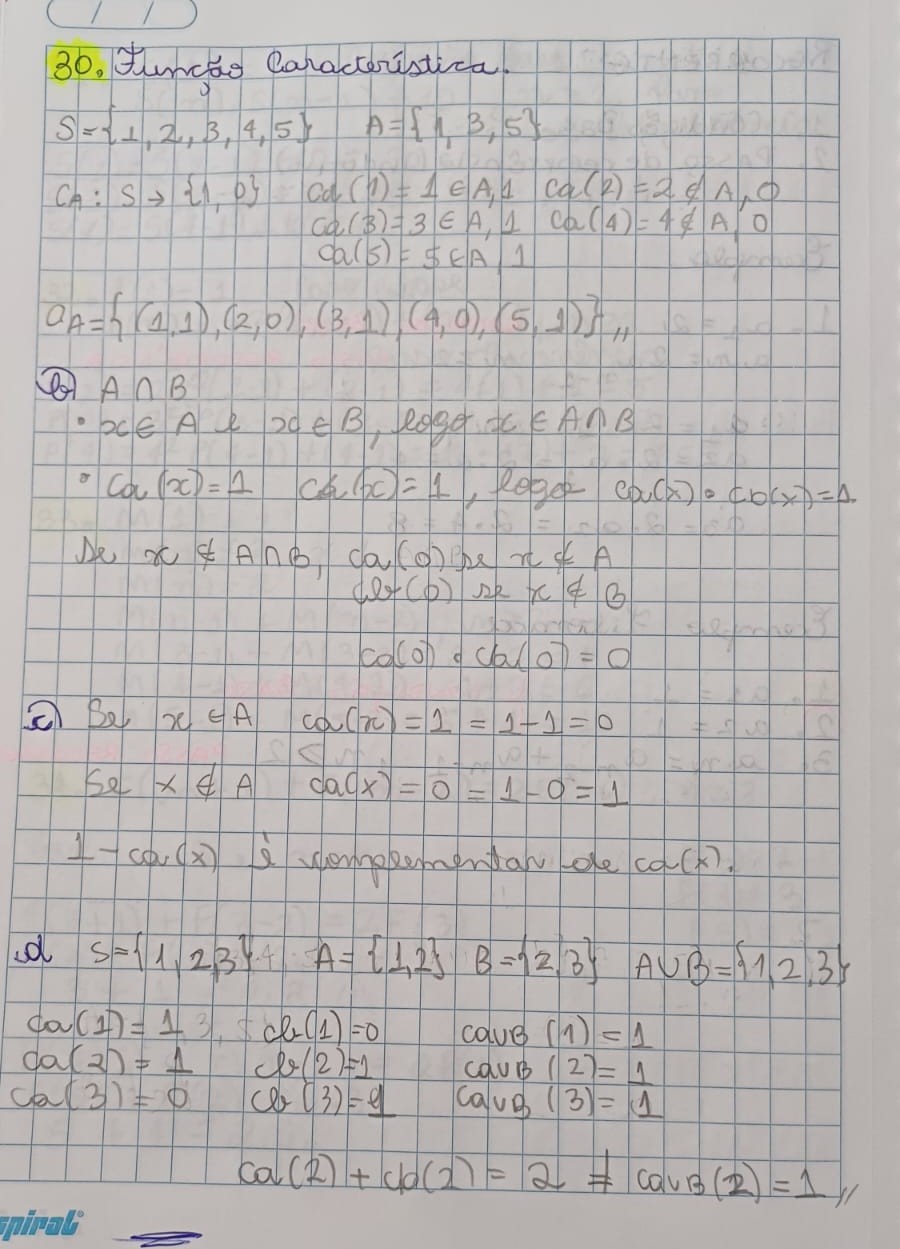 / /
30. Função Característica.
S={1,2,3,4,5} A={1,3,5}
CA: S → {1,0} ca(1)=1 ∈ A,1 ca(2)=2 ∉ A,0
ca(3)=3 ∈ A,1 ca(4)=4 ∉ A,0
ca(5)=5 ∈ A,1
CA={(1,1),(2,0),(3,1),(4,0),(5,1)},,
b) A ∩ B
• x ∈ A e x ∈ B, logo x ∈ A ∩ B
• ca(x)=1 cb(x)=1, logo ca(x) • cb(x)=1.
Se x ∉ A ∩ B, ca(0) se x ∉ A
cb(0) se x ∉ B
ca(0) • cb(0) = 0
c) Se x ∈ A ca(x) = 1 = 1-1 = 0
Se x ∉ A ca(x) = 0 = 1-0 = 1
1 - ca(x) é complementar de ca(x).
d S={1,2,3} A={1,2} B={2,3} A∪B={1,2,3}
ca(1) = 1 cb(1)=0 ca∪B (1) = 1
ca(2) = 1 cb(2)=1 ca∪B (2) = 1
ca(3) = 0 cb(3)=1 ca∪B (3) = 1
ca(2) + cb(2) = 2 ≠ ca∪B(2) = 1,,
spiral